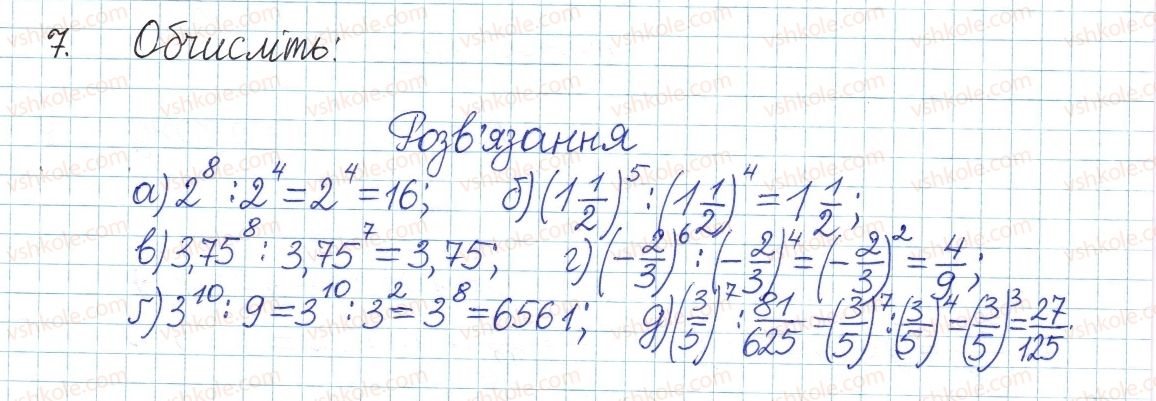 7. Обчисліть:
Розв'язання
а) 2^8 : 2^4 = 2^4 = 16; б) (1 1/2)^5 : (1 1/2)^4 = 1 1/2;
в) 3,75^8 : 3,75^7 = 3,75; г) (-2/3)^6 : (-2/3)^4 = (-2/3)^2 = 4/9;
ґ) 3^10 : 9 = 3^10 : 3^2 = 3^8 = 6561; д) (3/5)^7 : 81/625 = (3/5)^7 : (3/5)^4 = (3/5)^3 = 27/125.